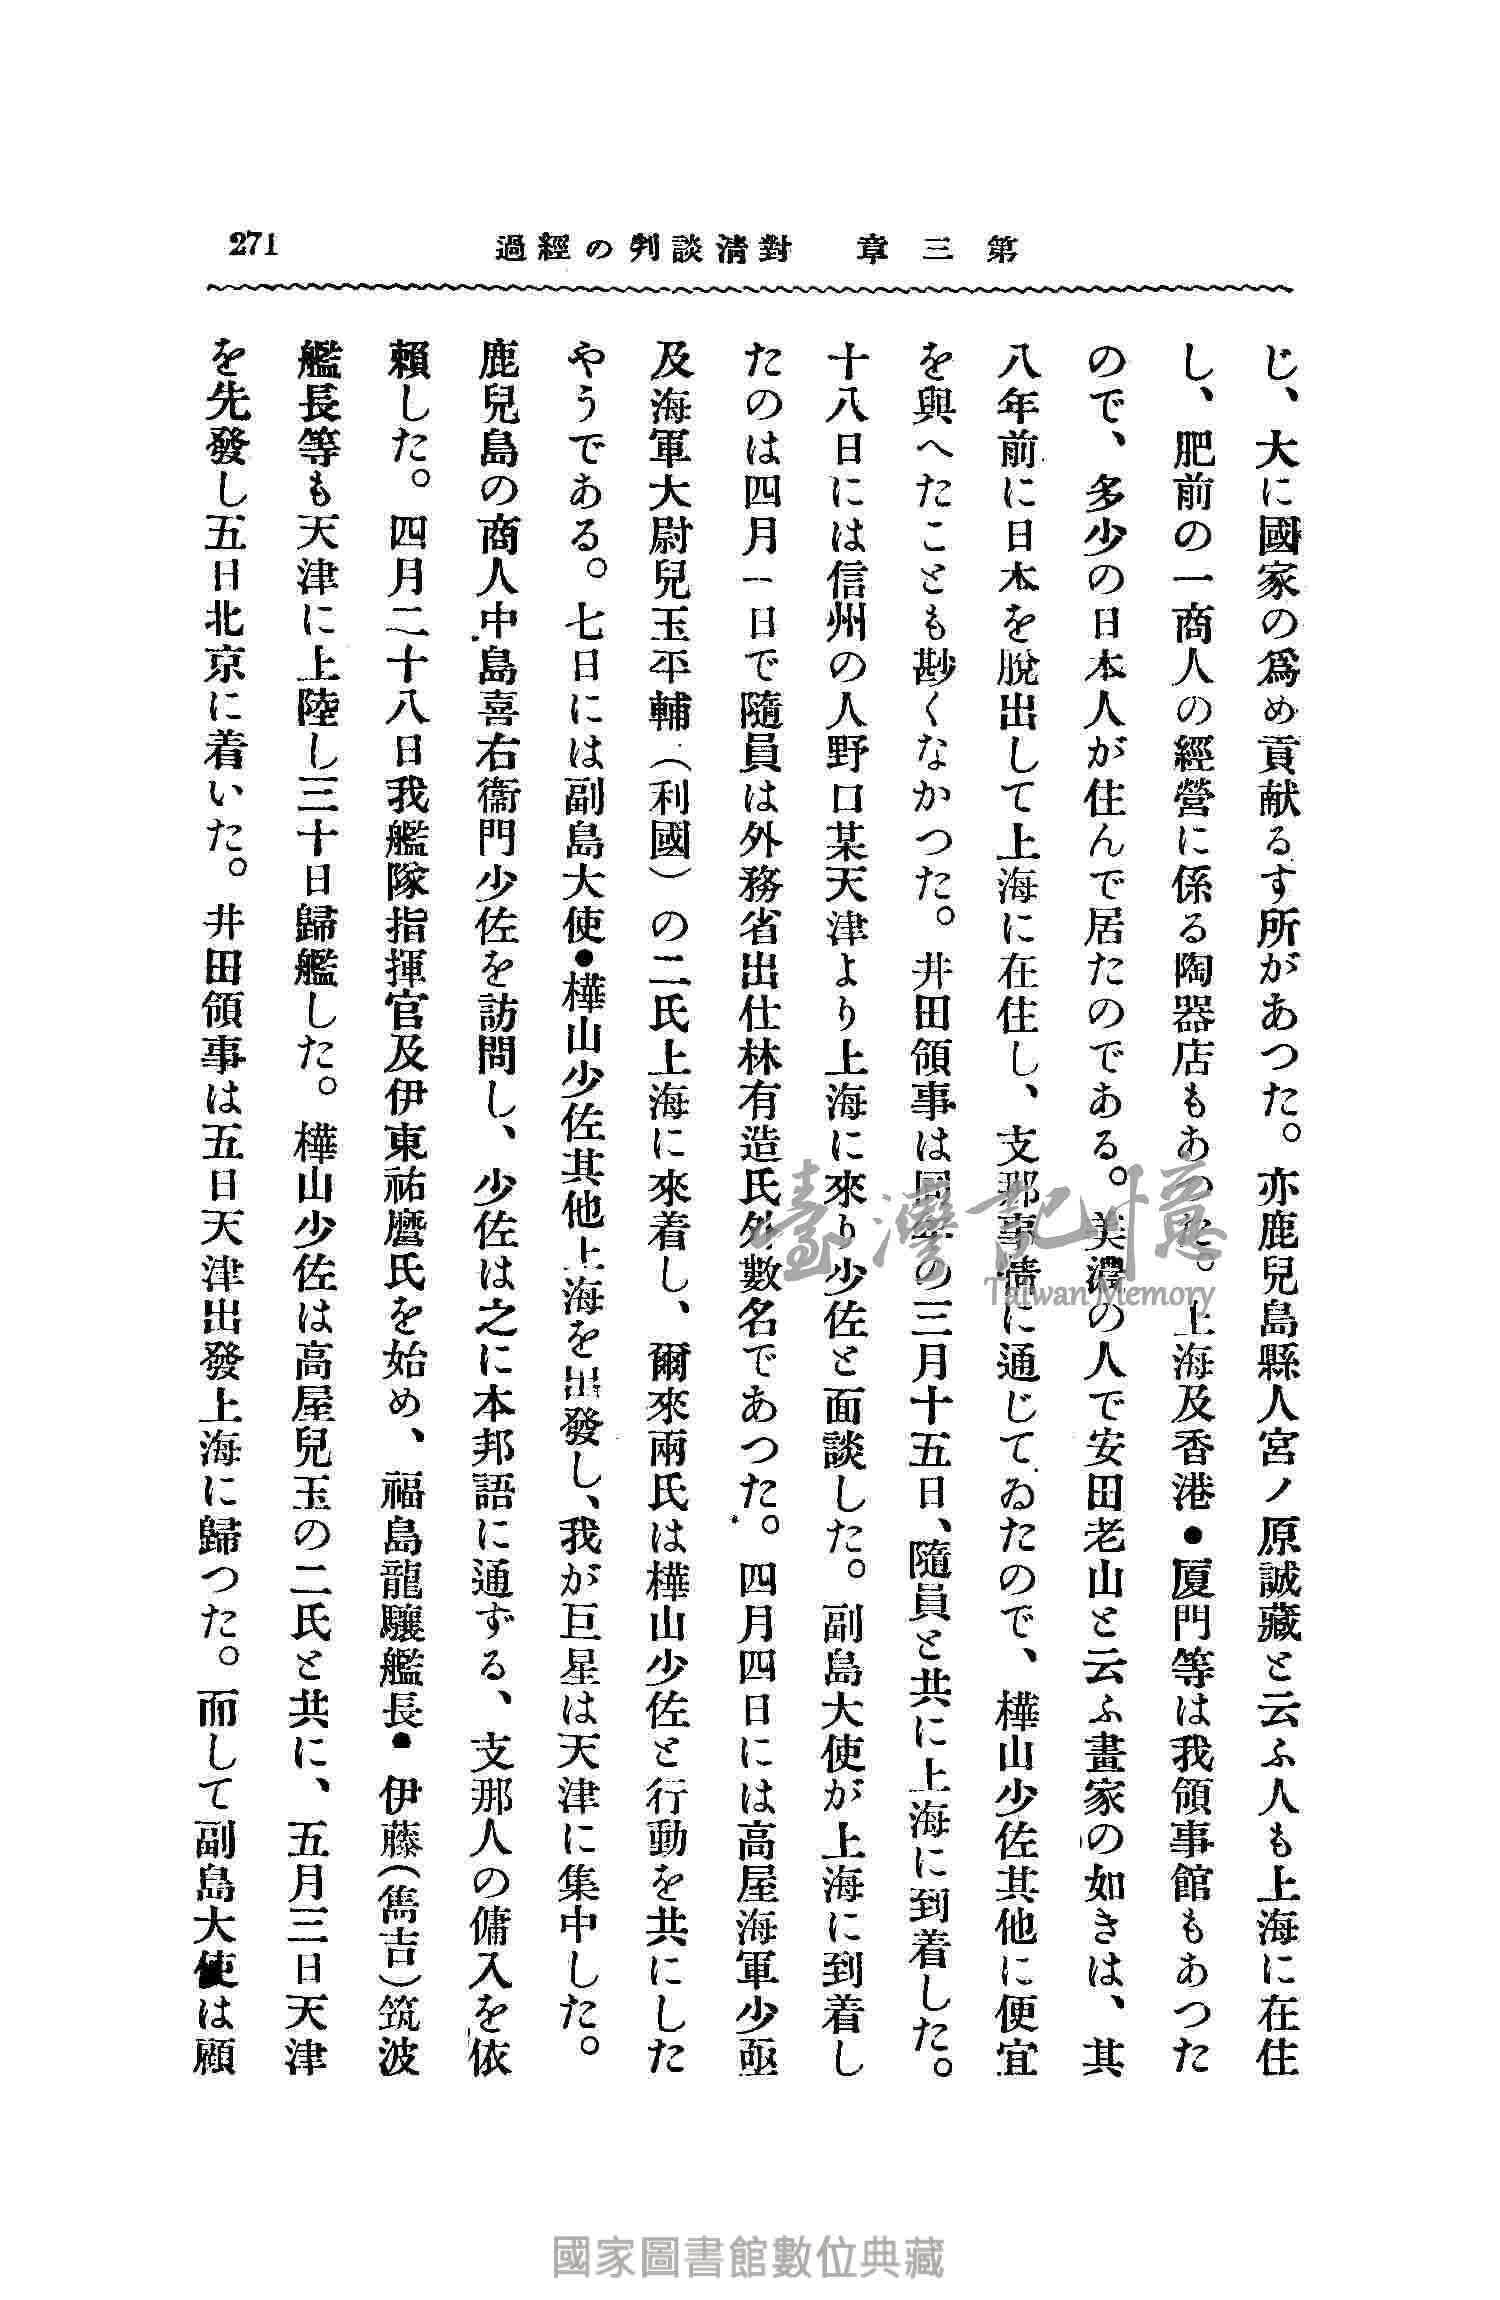 第三章　對清談判の經過
271
じ、大に國家の爲め貢献るす所があつた。亦鹿兒島縣人宮ノ原誠藏と云ふ人も上海に在住
し、肥前の一商人の經營に係る陶器店もあつた。上海及香港・厦門等は我領事館もあつた
ので、多少の日本人が住んで居たのである。美濃の人で安田老山と云ふ畫家の如きは、其
八年前に日本を脱出して上海に在住し、支那事情に通じてゐたので、樺山少佐其他に便宜
を與へたことも尠くなかつた。井田領事は同年の三月十五日、隨員と共に上海に到着した。
十八日には信州の人野口某天津より上海に來り少佐と面談した。副島大使が上海に到着し
たのは四月一日で隨員は外務省出仕林有造氏外數名であつた。四月四日には高屋海軍少亟
及海軍大尉兒玉平輔（利國）の二氏上海に來着し、爾來兩氏は樺山少佐と行動を共にした
やうである。七日には副島大使・樺山少佐其他上海を出發し、我が巨星は天津に集中した。
鹿兒島の商人中島喜右衞門少佐を訪問し、少佐は之に本邦語に通ずる、支那人の傭入を依
賴した。四月二十八日我艦隊指揮官及伊東祐麿氏を始め、福島龍驤艦長・伊藤（雋吉）筑波
艦長等も天津に上陸し三十日歸艦した。樺山少佐は高屋兒玉の二氏と共に、五月三日天津
を先發し五日北京に着いた。井田領事は五日天津出發上海に歸つた。而して副島大使は顧
臺灣記憶
Taiwan Memory
國家圖書館數位典藏